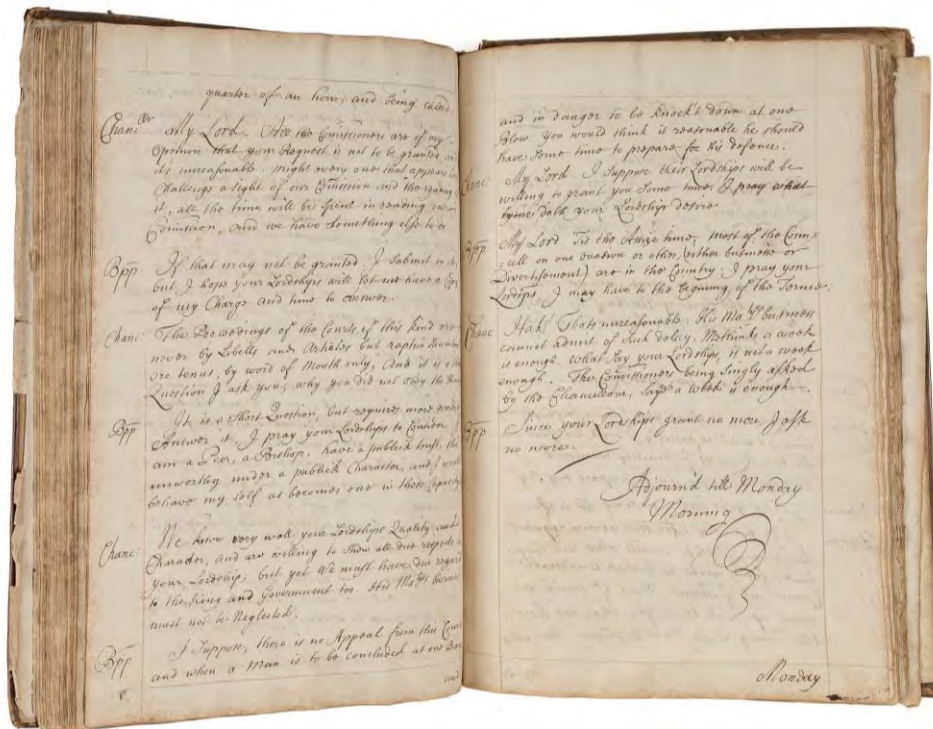 quarter of an hour, and being called
Chanc:er My Lord. All the Comissioners are of my
Opinion that your Request is not to be granted,
its unreasonable. Might every one that appears here
Challenge a sight of our Comission and the reading
it, all the time will be spent in reading our
Comission, and we have something else to
Bpp If that may not be granted, I submit to it,
but I hope your Lordships will let me have a
of my Charge and time to answer.
Chanc: The Proceedings of the Courts of this kind are
never by Libells and Articles but
ore tenus, by word of Mouth only, And it is a
Question I ask you, why you did not obey the
Bpp It is a short Question, but requires more
answer it. I pray your Lordships to Consider I
am a Peer, a Bishop, have a publick trust, tho
unworthy under a publick Character, and I would
behave my self as becomes one in that Capacity
Chanc: We know very well your Lordships Quality and
Character, and are willing to show all due respects
your Lordship, but yet We must have due regard
to the King and Government too. His Matys
must not be Neglected.
Bpp I Suppose, there is no Appeal from this Court
and when a Man is to be concluded at one
and
and in danger to be knock't down at one
Blow you would think it reasonable he should
have some time to prepare for his defence.
Chanc: My Lord. I suppose their Lordships will be
willing to grant you some time, I pray what
time doth your Lordship desire
Bpp My Lord Tis the Assize time, most of the Coun=
=cell on one ocasion or other, (either business or
Divertisement) are in the Country. I pray your
Lordships, I may have to the begining of the Terme.
Chanc: Hah! Thats unreasonable. His Matys business
cannot admit of such delay. Methinks a week
is enough. What say your Lordships, is not a week
enough. The Comissioners being singly asked
by the Chancellour, said a Week is enough.
Bpp Since your Lordships grant no more, I ask
no more.
Adjourn'd till Monday
Morning
Monday